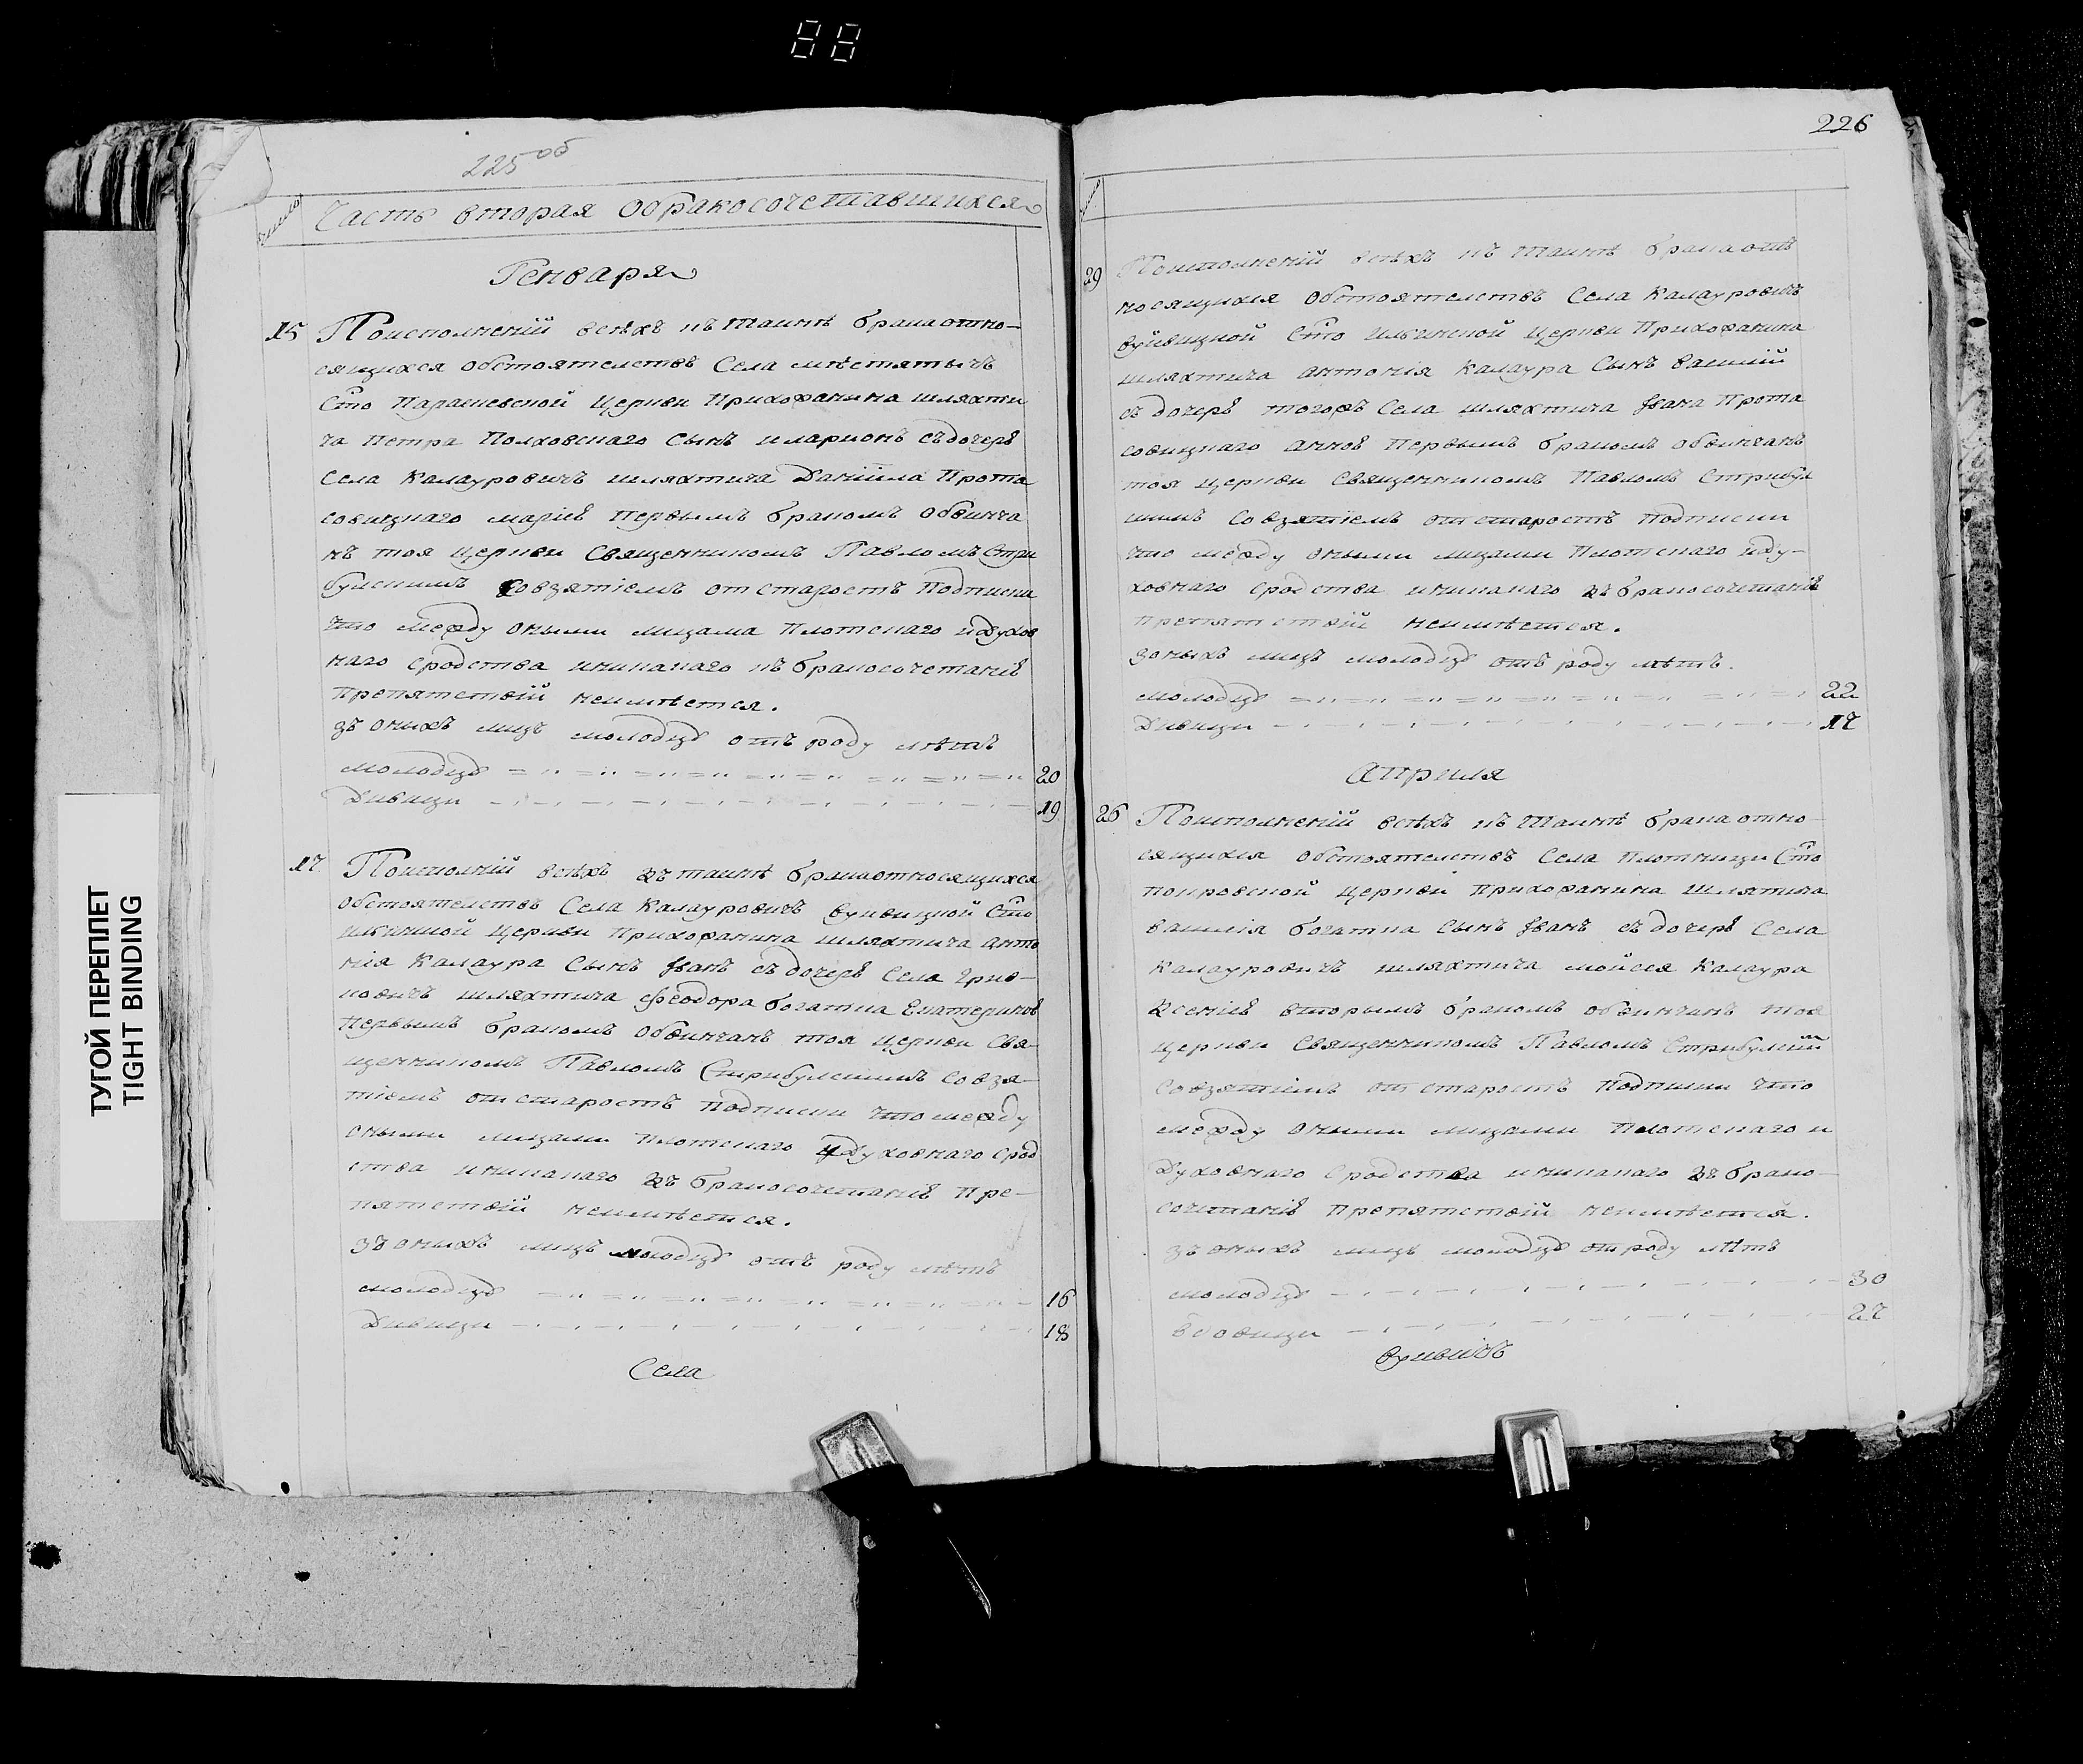 88
225 об
Часть вторая Обракосочетавшихся
Генваря
15 Поисполненій всѣхъ къ таинѣ брака отно-
сящихся обстоятелствъ Села мѣстятычъ
Сто Параскевской Церкви Прихожанина шляхти
ча Петра Полховскаго Сынъ иларионъ съ дочерѣ
Села Калауровичъ шляхтича Даніила Прота
совицкаго маріеѣ Первымъ бракомъ обвѣнча
нъ тоя Церкви Священникомъ Павломъ Стри
булскимъ Совзятіемъ от старостъ Подписки
что между оными лицама Плотскаго идухов
наго сродства иникакаго къ бракосочетаніѣ
препятствій неимѣется.
зъ оныхъ лицъ молодецъ отъ роду лѣтъ
молодецъ 20
Дивици 19
17 Поисполній всѣхъ къ таинѣ брака относящихся
обстоятелствъ Села Калауровичъ Сто
Церкви Прихожанина шляхтича анто
нія Калаура Сынъ Іванъ съ дочерѣ Села Грив-
ковичъ шляхтича Феодора богатка Екатериноѣ
Первымъ бракомъ обвѣнчанъ тоя Церкви Свя-
щенникомъ Павломъ Стрибулскимъ Совзя-
тіемъ от старостъ Подписки что между
оными лицами Плотскаго идуховнаго срод
ства иникакаго къ бракосочетаніѣ Пре-
пятствій неимѣется.
зъ оныхъ лицъ молодецъ отъ роду лѣтъ
молодецъ 16
Дивици 18
Села
226
29 Поисполненій всѣхъ къ таинѣ брака отъ
носящихся обстоятелствъ Села Калауровичъ
Сто Илѣинской Церкви Прихожанина
шляхтича антонія Калаура Сынъ василій
съ дочерѣ тогожъ Села шляхтича Івана Прота
совицкаго анноѣ Первымъ бракомъ обвинчанъ
тоя Церкви Священникомъ Павломъ Стрибул
скимъ Совзятіемъ от старостъ Подписки
что между оными лицами Плотскаго иду-
ховнаго сродства иникакаго къ бракосочетаніѣ
препятствій неимѣется.
зоныхъ лицъ молодецъ отъ роду лѣтъ.
молодецъ 22
Дивици 17
Априля
26 Поисполненій всѣхъ къ таинѣ брака отно-
сящихся обстоятелствъ Села Плотници Сто
покровской Церкви Прихожанина Шляхтича
василія богатка Сынъ Іванъ съ дочерѣ Села
Калауровичъ шляхтича мойсея Калаура
Ксеніеѣ вторымъ бракомъ обвинчанъ тоя
Церкви Священникомъ Павломъ Стрибулским
Совзятіемъ от старостъ Подписки что
между оными лицами Плотскаго и
Духовнаго сродства иникакаго къ брако-
сочетаніѣ препятствій неимѣется.
зъ оныхъ лицъ молодецъ от роду лѣтъ
молодецъ 30
вдовици 27
ТУГОЙ ПЕРЕПЛЕТ
TIGHT BINDING